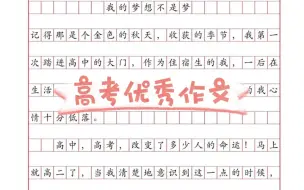 我的梦想不是梦
记得那是个金色的秋天，收获的季节，我第一
次踏进高中的大门，作为住宿生的我，一后在
生活
的我心
高考优秀作文
情十分低落。
高中、高考，改变了多少人的命运！马上
就高二了，当我清楚地意识到这一点的时候，